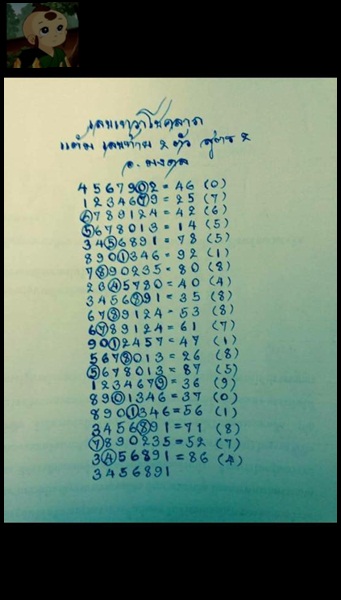 แต้ม เลขท้าย 2 ตัว สูตร 2
อ. มงคล
4567902 = 46 (0)
1234679 = 25 (7)
6789124 = 42 (6)
5678013 = 14 (5)
3456891 = 78 (5)
8901346 = 92 (1)
7890235 = 80 (8)
2345780 = 40 (4)
3456891 = 35 (8)
6789124 = 53 (8)
6789124 = 61 (7)
9012457 = 47 (1)
5678013 = 26 (8)
5678013 = 87 (5)
1234679 = 36 (9)
8901346 = 37 (0)
8901346 = 56 (1)
3456891 = 71 (8)
7890235 = 52 (7)
3456891 = 86 (4)
3456891